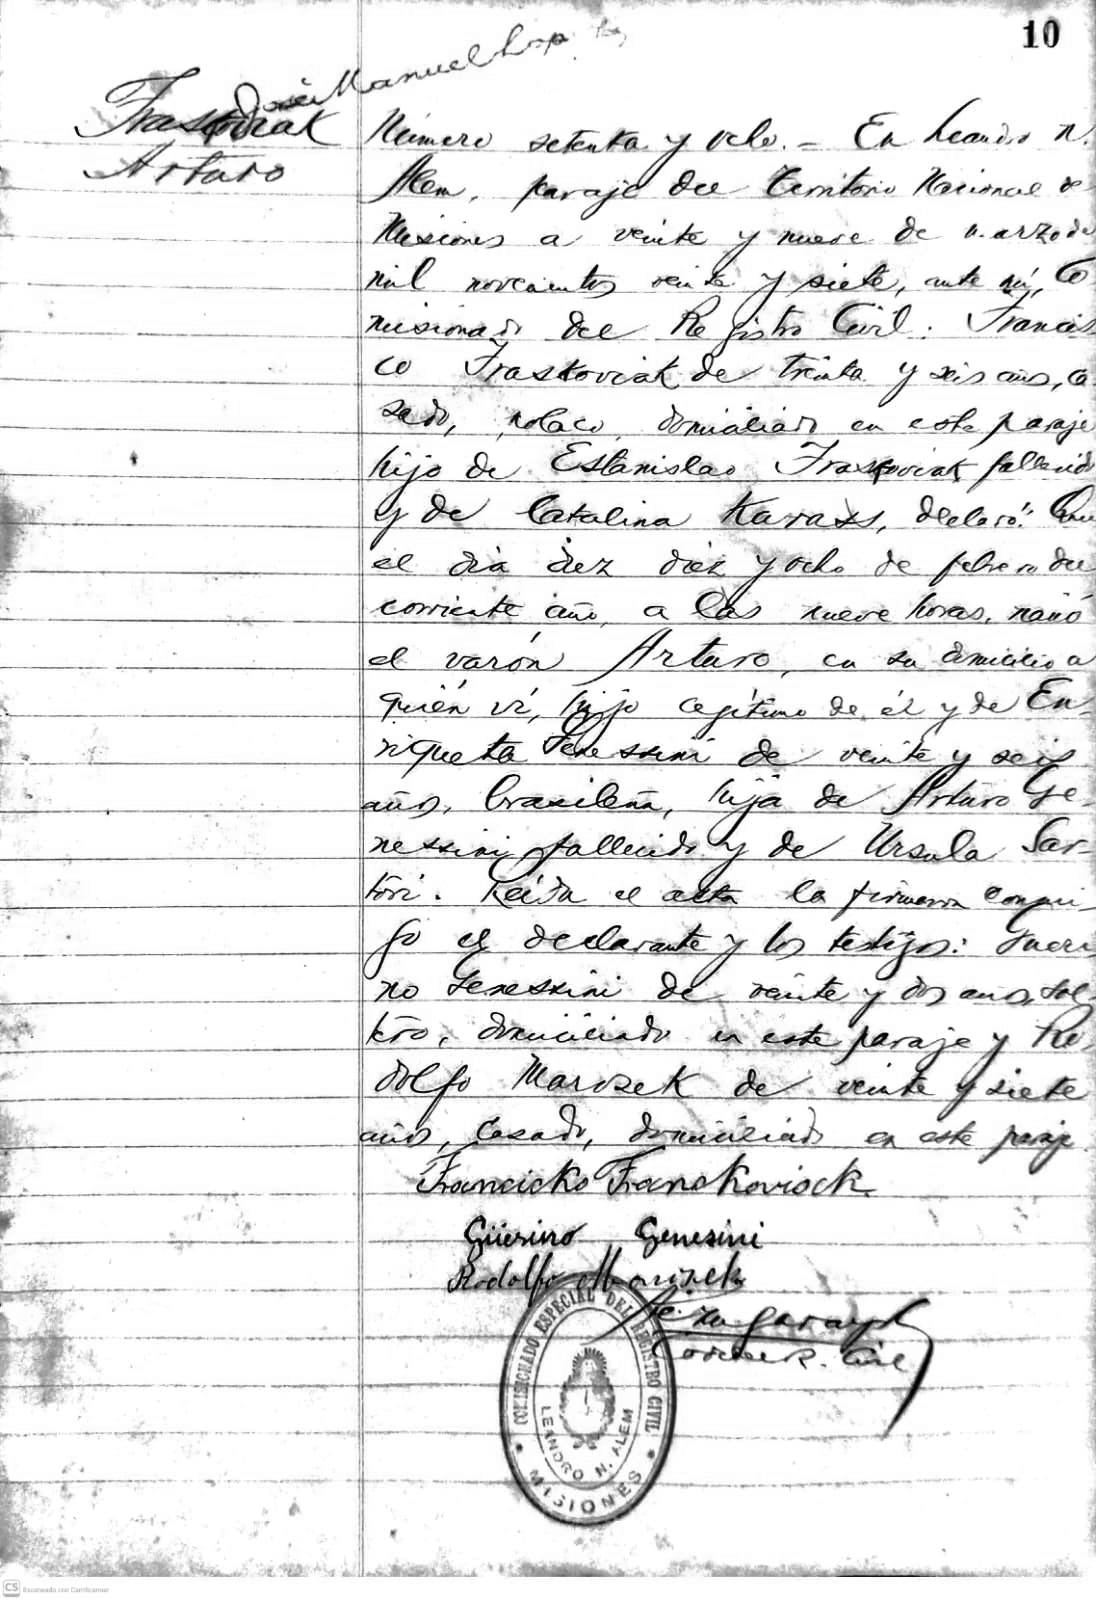 10
José Manuel Lop
Fraskoviak
Arturo
Número setenta y ocho. – En Leandro N.
Alem, paraje del Territorio Nacional de
Misiones a veinte y nueve de marzo de
mil novecientos veinte y siete, ante mí, Co-
misionado del Registro Civil: Francis
co Fraskoviak de treinta y seis años, ca
sado, polaco, domiciliado en este paraje
hijo de Estanislao Fraskoviak fallecido
y de Catalina Karass, declaró: Que
el día diez diez y ocho de febrero del
corriente año, a las nueve horas, nació
el varón Arturo, en su domicilio a
quién ví, hijo legítimo de él y de En-
riqueta Genessini de veinte y seis
años, brasileña, hija de Arturo Ge-
nessini fallecido y de Ursula Sar-
tori. Leída el acta la firmaron conmi-
go el declarante y los testigos: Gueri
no Genessini de veinte y dos años, sol-
tero, domiciliado en este paraje y Ro-
dolfo Marosek de veinte y siete
años, casado, domiciliado en este paraje
Francicko Franckoviack
Güerino Genesini
Rodolfo Marisek
Garay
R. Civil
COMISIONADO ESPECIAL DEL REGISTRO CIVIL
LEANDRO N. ALEM
MISIONES
CS Escaneado con CamScanner